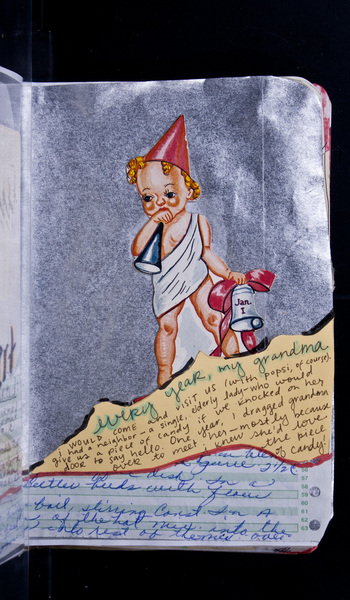 Jan.
1
every year, my grandma
WOULD COME AND VISIT US (with popsi, of course).
I had a neighbor - a single, elderly lady - who would
give us a piece of candy if we knocked on her
door to say hello. One year, I dragged grandma
over to meet her - mostly because
I knew she'd love
the piece
of candy!
in a dish. In a
butter
with flour
boil, stirring Const. In a
of the hot mix. into the
into rest of